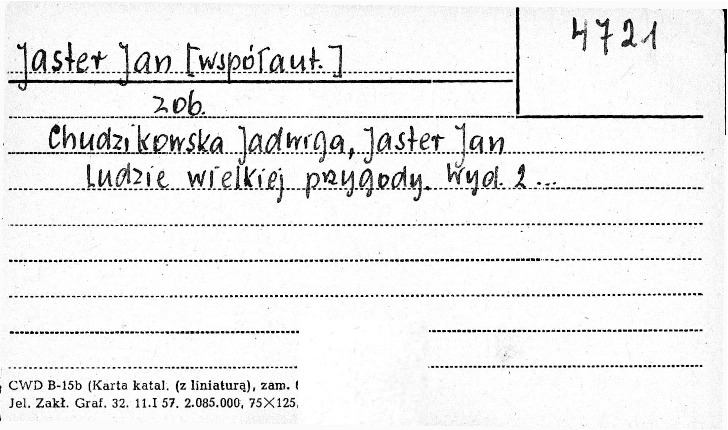 4721
Jaster Jan [współaut.]
zob.
Chudzikowska Jadwiga, Jaster Jan
Ludzie wielkiej przygody. Wyd. 2...
CWD B-15b (Karta katal. (z liniaturą), zam.
Jel. Zakł. Graf. 32. 11.I 57. 2.085.000, 75×125,